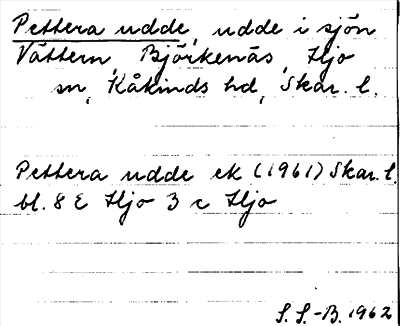 Pettera udde, udde i sjön
Vättern, Björkenäs, Hjo
sn, Kåkinds hd, Skar. l.
Pettera udde ek (1961) Skar. l.
bl. 8 E Hjo 3 c Hjo
S. S.-B. 1962